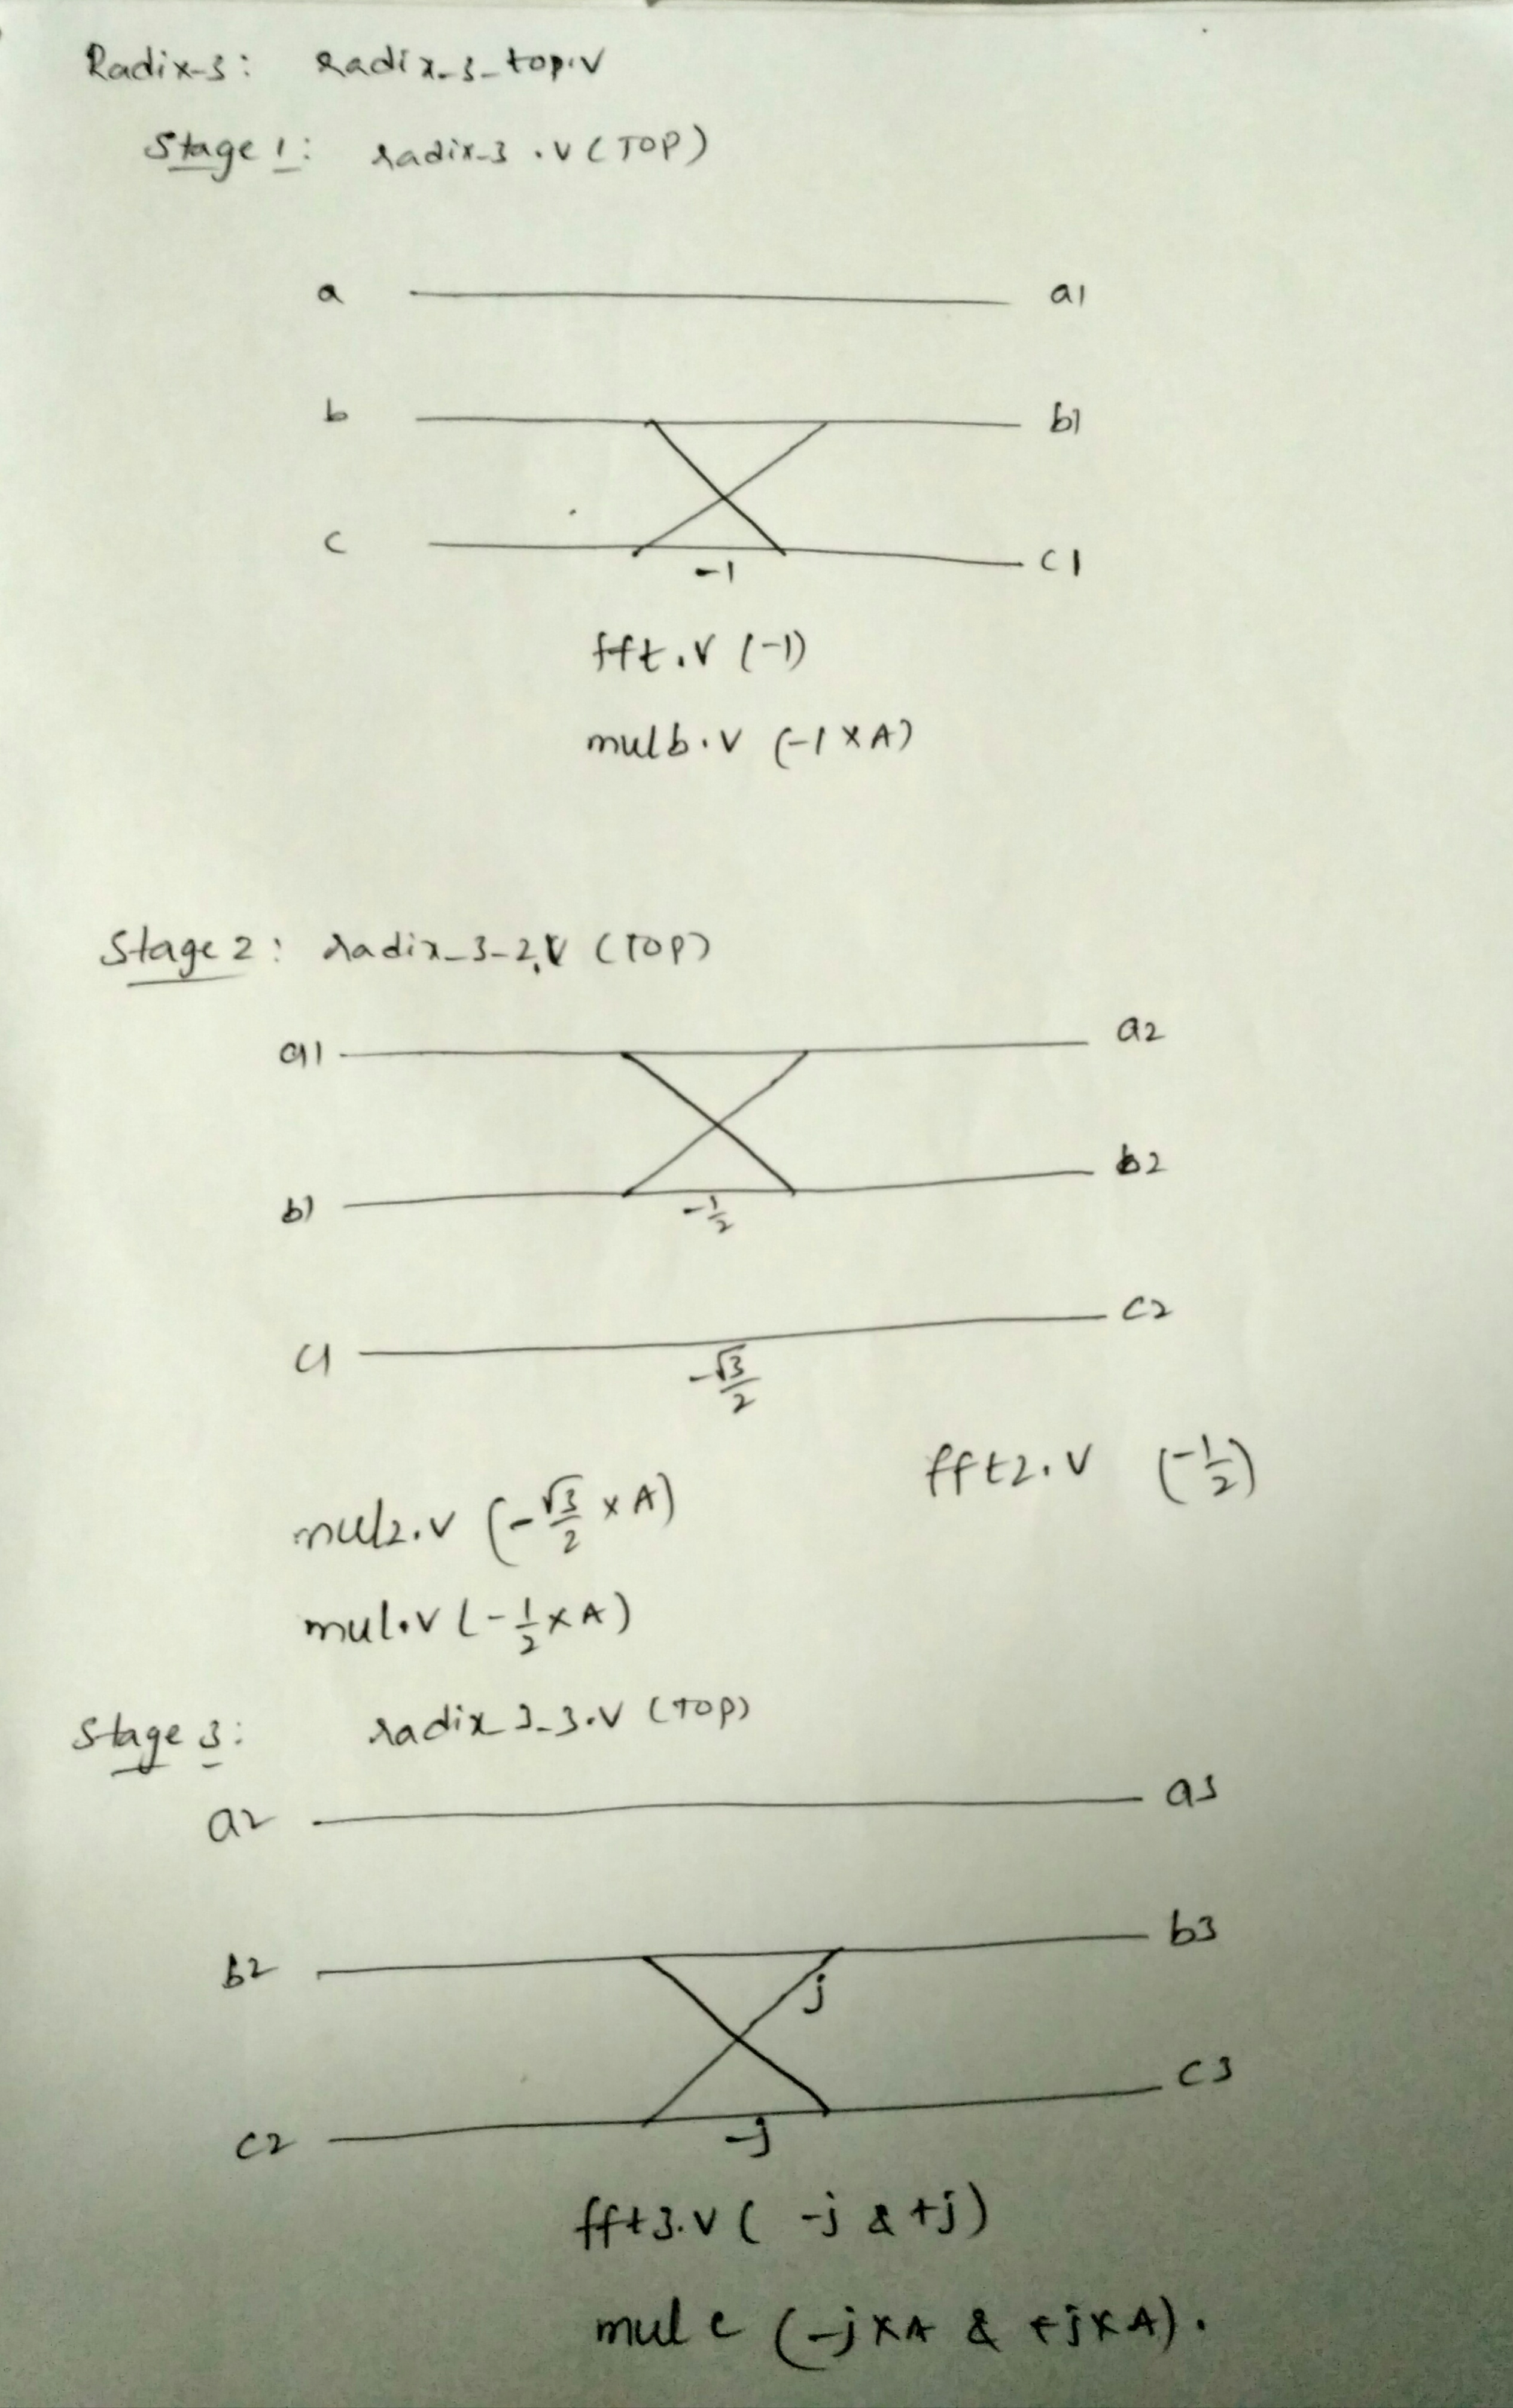 Radix-3: radix-3-top.v
Stage 1: radix-3.v (TOP)
a a1
b b1
c c1
-1
fft.v (-1)
mulb.v (-1 x A)
Stage 2: radix-3-2.v (TOP)
a1 a2
b1 b2
-1/2
c1 c2
-√3/2
fft2.v (-1/2)
mul2.v (-√3/2 x A)
mul.v (-1/2 x A)
Stage 3: radix 3-3.v (TOP)
a2 a3
b2 b3
j
c2 c3
-j
fft3.v ( -j & +j)
mul c (-j x A & +j x A).